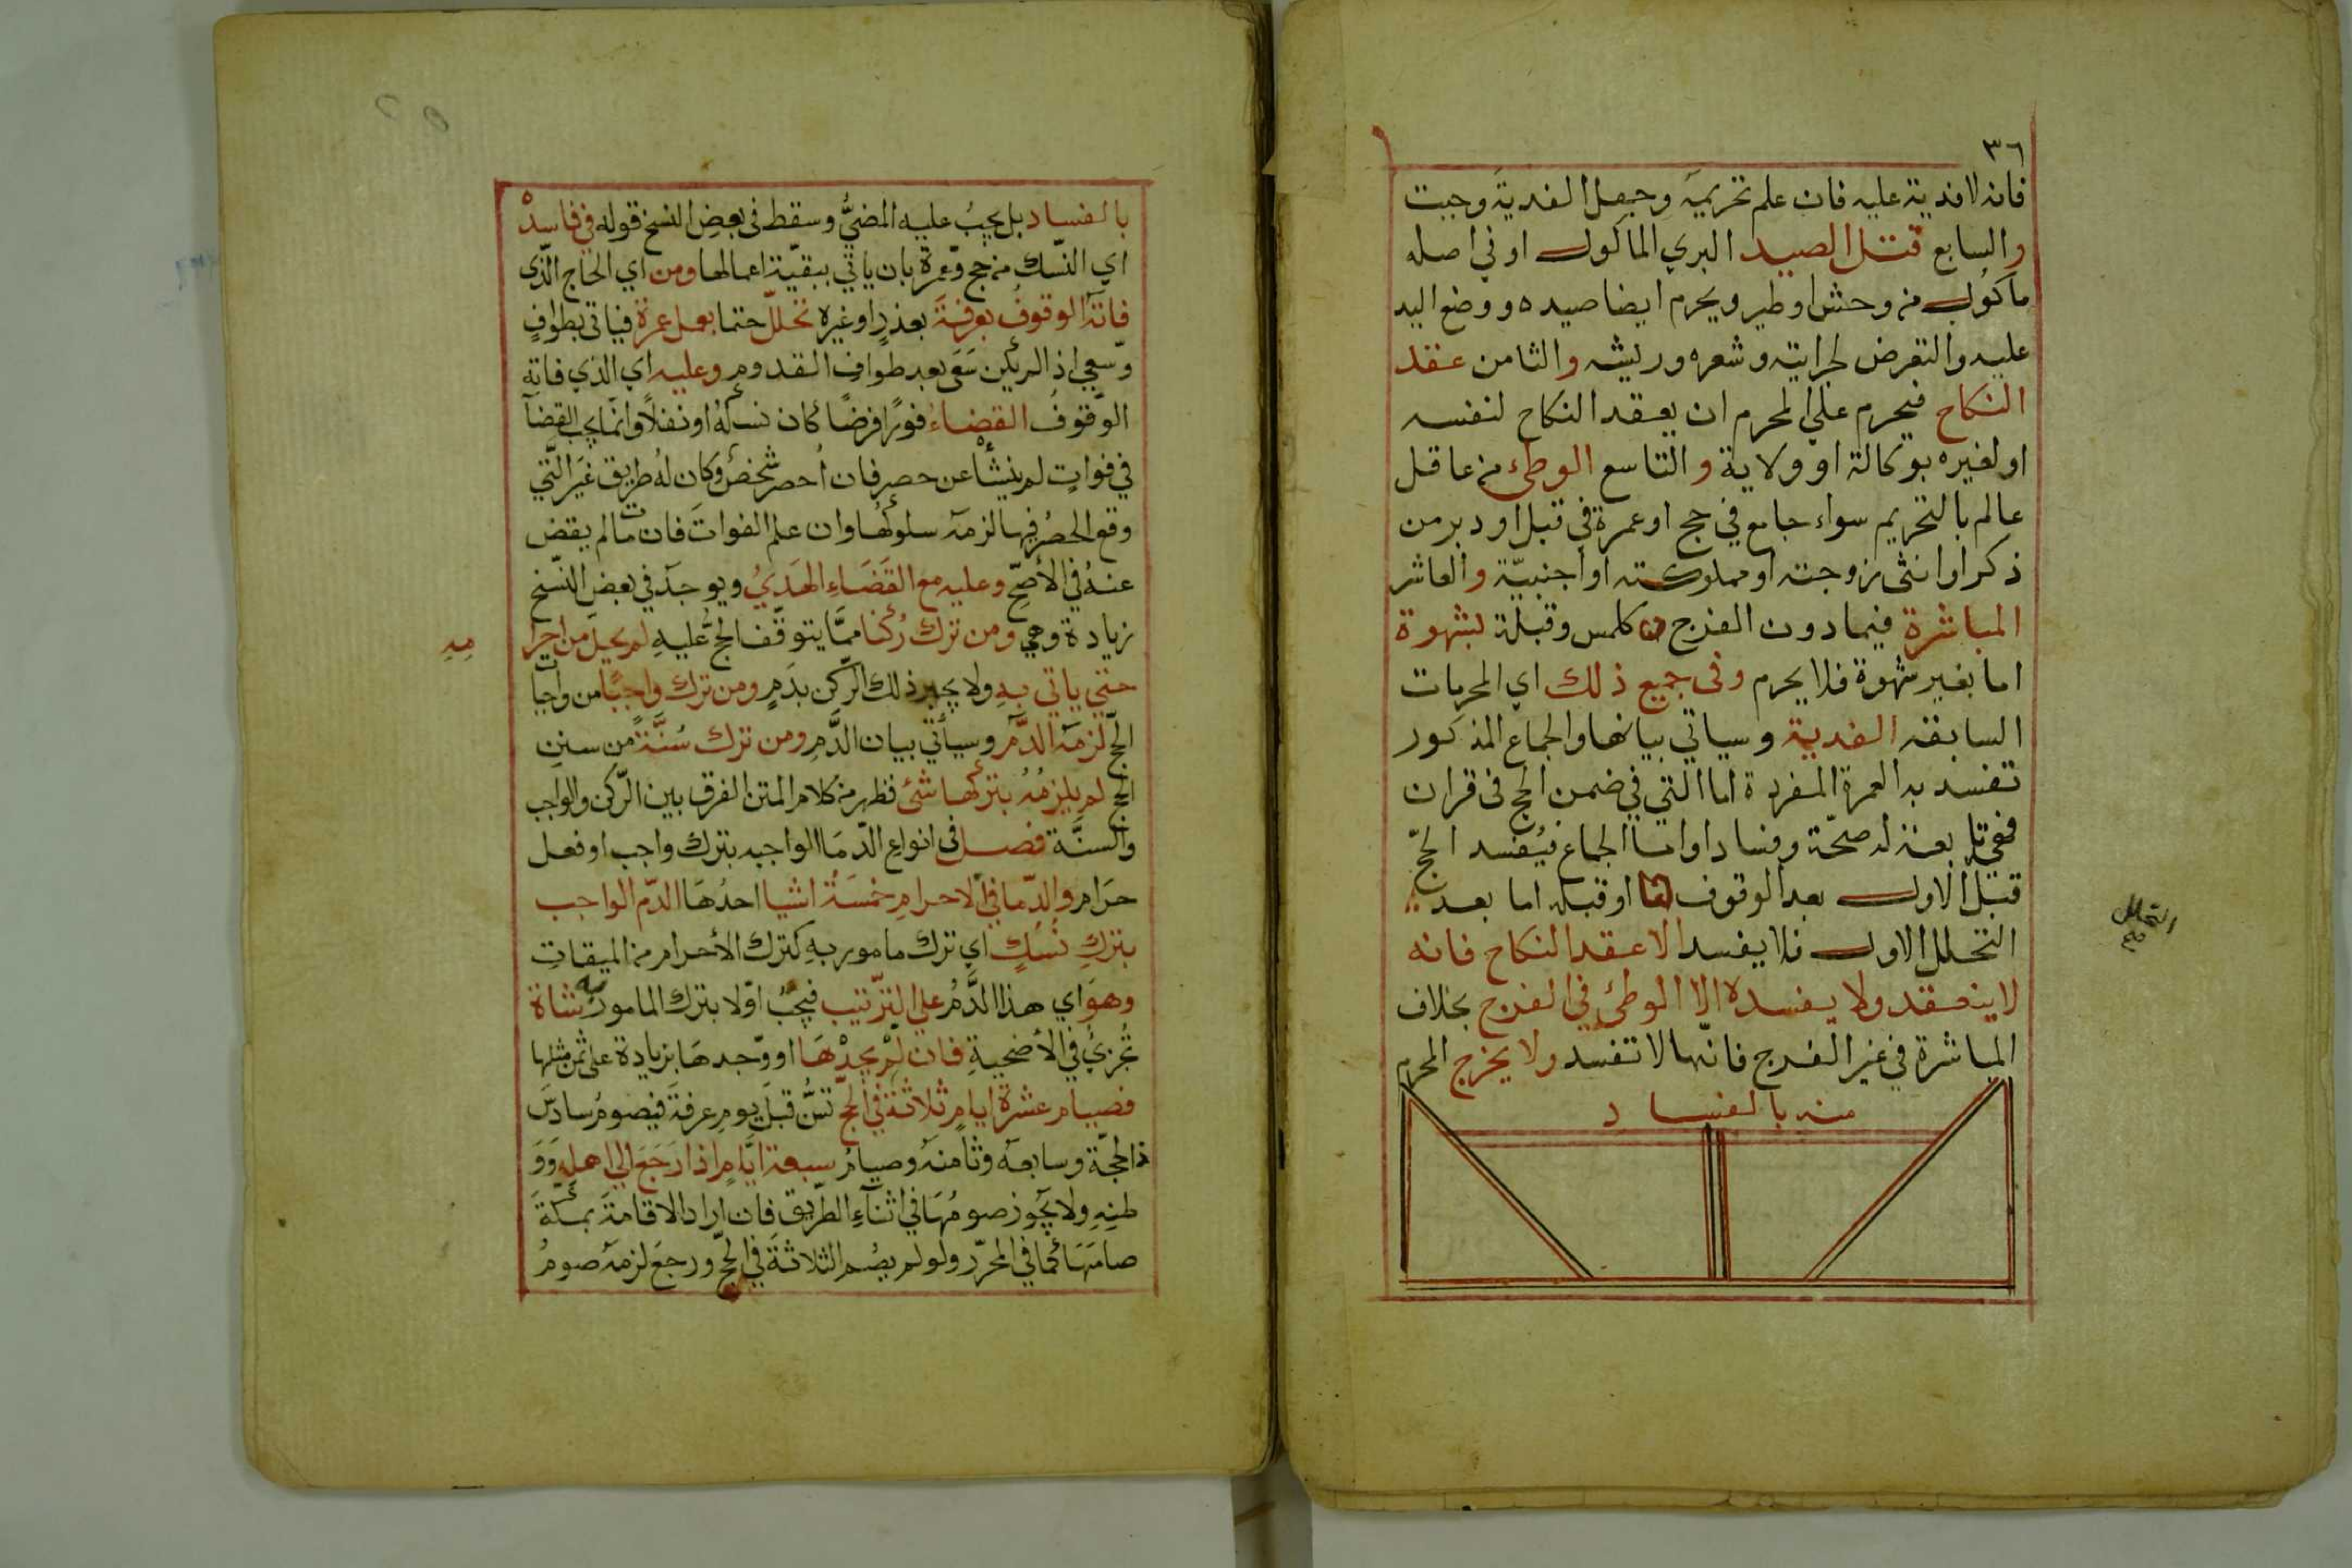 ٣٦
فانه لا فدية عليه فان علم تحريمه وجهل الفدية وجبت
والسابع قتل الصيد البري الماكول او في اصله
ماكول من وحش او طير ويحرم ايضا صيده ووضع اليد
عليه والتعرض لجرايته وشعره وريشه والثامن عقد
النكاح فيحرم علي المحرم ان يعقد النكاح لنفسه
او لغيره بوكالة او ولاية والتاسع الوطي من عاقل
عالم بالتحريم سواء جامع في حج او عمرة في قبل او دبر من
ذكر او انثى زوجته او مملوكته او اجنبيّة والعاشر
المباشرة فيما دون الفرج كلمس وقبلة بشهوة
اما بغير شهوة فلا يحرم وفي جميع ذلك اي المحرمات
السابقه الفدية وسياتي بيانها والجماع المذكور
تفسد به العمرة المفردة اما التي في ضمن الحج في قران
فهي تابعة له صحّة وفسادا واما الجماع فيُفسد الحجّ
قبل الاول بعد الوقوف او قبله اما بعد
التحلل الاول فلا يفسد الا عقد النكاح فانه
لا ينعقد ولا يفسده الا الوطئ في الفرج بخلاف
المباشرة في غير الفرج فانّها لا تفسد ولا يخرج المحرم
منه بالفساد
التحلل
صح
بالفساد بل يجبُ عليه المضيُّ وسقط في بعض النسخ قوله في فاسده
اي النّسك من حج وعمرة بان ياتي ببقيّة اعمالها ومن اي الحاج الّذى
فاتهُ الوقوفُ بعرفةَ بعذرٍ او غيره تحلّل حتما بعمل عمرة فياتى بطوافٍ
وّسعيٍ اذ لم يكن سَعَى بعد طوافِ القدوم وعليه اي الذي فاته
الوقوفُ القضاءُ فورًا فرضًا كان نسكهُ او نفلًا وانّما يجب القضآ
في فواتٍ لم ينشأ عن حصرٍ فان اُحصر شخصٌ وكان لهُ طريق غير الّتي
وقع الحصرُ فيها لزمهُ سلوكُها وان علم الفواتَ فان مات لم يقض
عنهُ في الأصحِّ وعليه مع القَضَاءِ الهَديُ ويوجدُ في بعض النّسَخ
زيادة وهي ومن ترك رُكنا ممّا يتوقّف الحجُّ عليهِ لم يحلّ من احرا
مِهِ
حتي ياتي بهِ ولا يجبر ذلك الرّكن بدَمٍ ومن ترك واجبًا من واجبات
الحجّ لزمهُ الدّم وسيأتي بيان الدَّمِ ومن ترك سُنَّةً من سننِ
الحجّ لم يلزمُهُ بتركها شئ فظهر من كلام المتن الفرق بين الرّكن والواجب
والسنَّة فصل فى انواع الدّمَا الواجبه بترك واجب او فعل
حَرَام والدّما في الاحرامِ خمسَةُ اشيا احدُهَا الدّم الواجب
بتركِ نُسُكٍ اي ترك مامور بهِ كترك الأحرام من الميقاتِ
وهوَ اي هذا الدَّمُ علي التّرتيب فيجبُ اوّلا بترك المامور به شاة
تُجزيُ في الأضحيةِ فان لم يجدْهَا او وّجدهَا بزيادة على ثمن مثلها
فصيام عشرة ايامٍ ثلاثةٍ في الحجّ تسنُّ قبل يوم عرفة فيصومُ سادسَ
ذا لحجّة وسابعهُ وثامنهُ وصيامُ سبعة ايَّامٍ اذا رَجَعَ الي اهلهِ وَوَ
طنِهِ ولا يجُوز صومُهَا في اثنآءِ الطّريق فان اراد الاقامةَ بمكّةَ
صامَهَا كما في المحرّر ولو لم يصُم الثلاثةَ في الحجّ ورجعَ لزمهُ صومُ